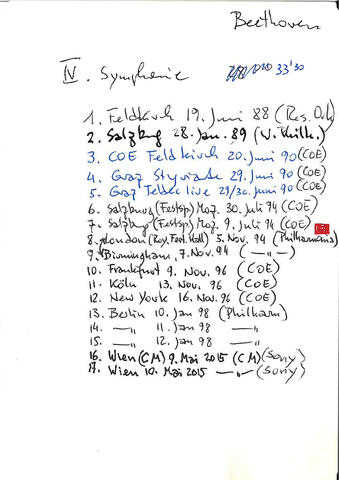 Beethoven
IV. Symphonie 33'30
1. Feldkirch 19. Juni 88 (Res. Ork)
2. Salzburg 28. Jan. 89 (W. Philh.)
3. COE Feldkirch 20. Juni 90 (COE)
4. Graz Styriade 29. Juni 90 (COE)
5. Graz Teldec live 29/30. Juni 90 (COE)
6. Salzburg (Festsp) Moz. 30. Juli 94 (COE)
7. Salzburg (Festsp) Moz. 9. Juli 94 (COE)
8. London (Roy. Fest. Hall) 5. Nov. 94 (Philharmonia)
9. Birmingham, 7. Nov 94 (—„—)
10. Frankfurt 9. Nov. 96 (COE)
11. Köln 13. Nov. 96 (COE)
12. New York 16. Nov. 96 (COE)
13. Berlin 10. Jan 98 (Philharm)
14. —„— 11. Jan 98 —„—
15. —„— 12. Jan 98 —„—
16. Wien (CM) 9. Mai 2015 (CM) (Sony)
17. Wien 10. Mai 2015 —„— (Sony)